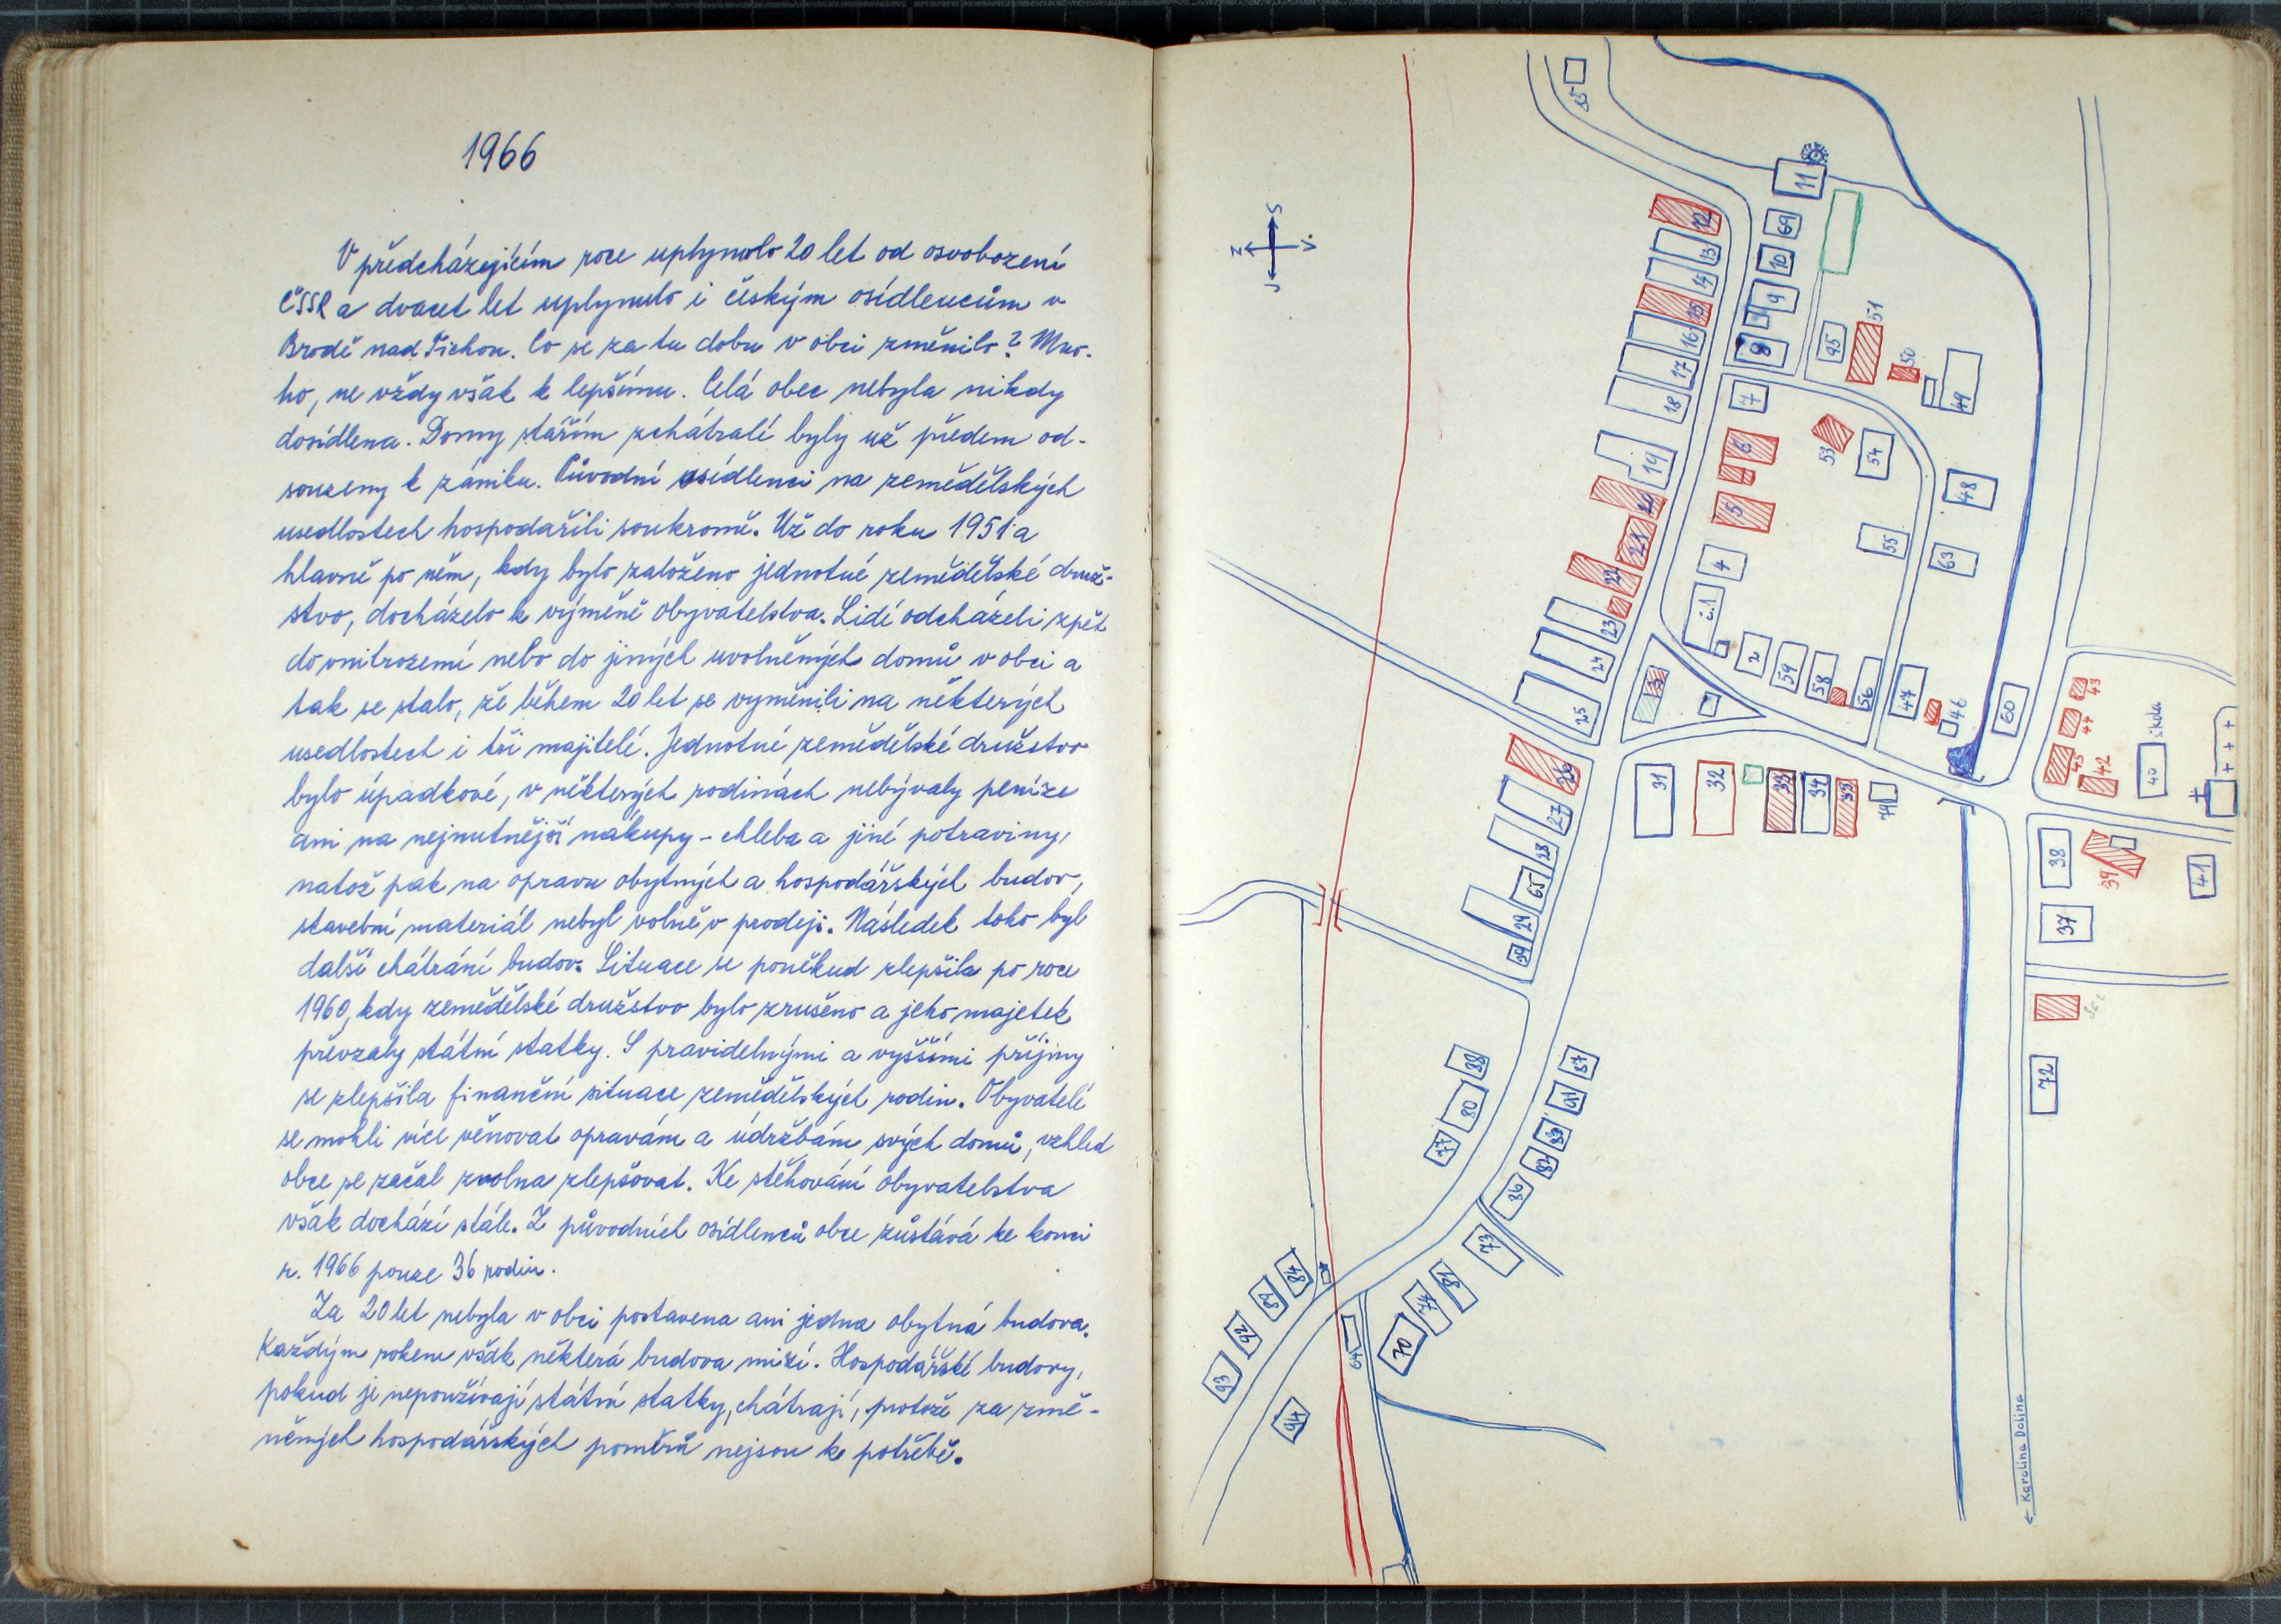 1966
V předcházejícím roce uplynulo 20 let od osvobození
ČSSR a dvacet let uplynulo i českým osídlencům v
Brodě nad Tichou. Co se za tu dobu v obci změnilo? Mno-
ho, ne vždy však k lepšímu. Celá obec nebyla nikdy
dosídlena. Domy stářím zchátralé byly už předem od-
souzeny k zániku. Původní osídlenci na zemědělských
usedlostech hospodařili soukromě. Už do roku 1951 a
hlavně po něm, kdy bylo založeno jednotné zemědělské druž-
stvo, docházelo k výměně obyvatelstva. Lidé odcházeli zpět
do vnitrozemí nebo do jiných uvolněných domů v obci a
tak se stalo, že během 20 let se vyměnili na některých
usedlostech i tři majitelé. Jednotné zemědělské družstvo
bylo úpadkové, v některých rodinách nebývaly peníze
ani na nejnutnější nákupy - chleba a jiné potraviny,
natož pak na opravu obytných a hospodářských budov,
stavební materiál nebyl volně v prodeji. Následek toho byl
další chátrání budov. Situace se poněkud zlepšila po roce
1960, kdy zemědělské družstvo bylo zrušeno a jeho majetek
převzaly státní statky. S pravidelnými a vyššími příjmy
se zlepšila finanční situace zemědělských rodin. Obyvatelé
se mohli více věnovat opravám a údržbám svých domů, vzhled
obce se začal zvolna zlepšovat. Ke stěhování obyvatelstva
však dochází stále. Z původních osídlenců obce zůstává ke konci
r. 1966 pouze 36 rodin.
Za 20 let nebyla v obci postavena ani jedna obytná budova.
Každým rokem však některá budova mizí. Hospodářské budovy,
pokud je nepoužívají státní statky, chátrají, protože za změ-
něných hospodářských poměrů nejsou ke potřebě.
85
11
S
Z
V.
J
12
69
13
10
14
9
15
51
16
8
95
17
50
18
7
49
6
53
54
19
20
5
48
21
55
63
22
4
č.1
23
2
24
59
58
56
47
46
60
3
25
43
44
45
42
škola
40
26
31
32
33
34
35
27
28
65
29
38
39
41
37
72
88
80
77
87
91
86
73
84
92
93
94
74
70
64
← Karolina Dolina